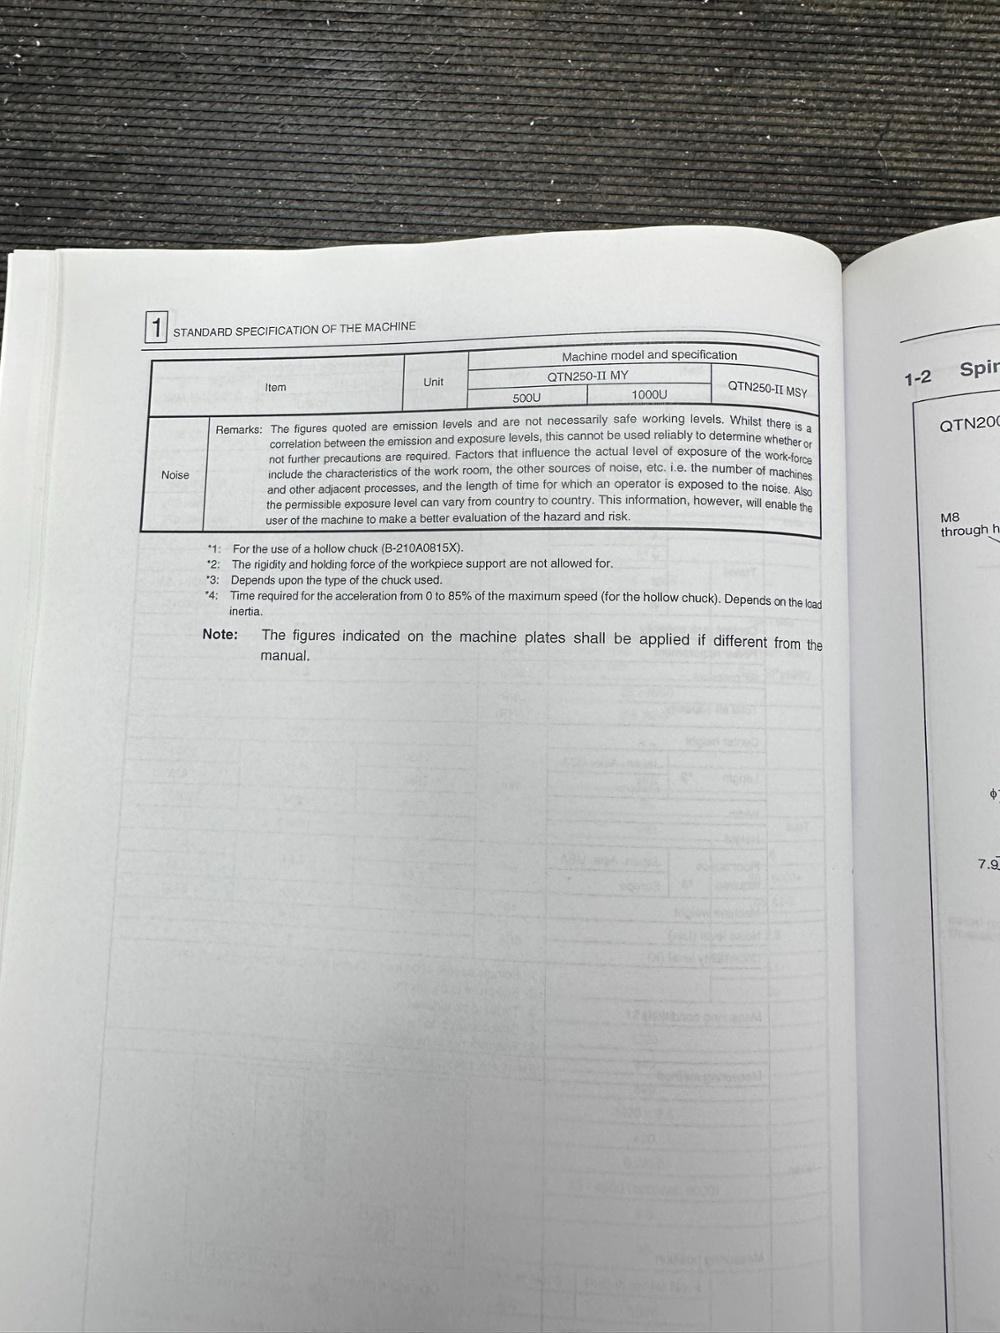 1 STANDARD SPECIFICATION OF THE MACHINE
Item
Unit
Machine model and specification
QTN250-II MY
QTN250-II MSY
500U
1000U
Noise
Remarks: The figures quoted are emission levels and are not necessarily safe working levels. Whilst there is a
correlation between the emission and exposure levels, this cannot be used reliably to determine whether or
not further precautions are required. Factors that influence the actual level of exposure of the work-force
include the characteristics of the work room, the other sources of noise, etc. i.e. the number of machines
and other adjacent processes, and the length of time for which an operator is exposed to the noise. Also
the permissible exposure level can vary from country to country. This information, however, will enable the
user of the machine to make a better evaluation of the hazard and risk.
*1: For the use of a hollow chuck (B-210A0815X).
*2: The rigidity and holding force of the workpiece support are not allowed for.
*3: Depends upon the type of the chuck used.
*4: Time required for the acceleration from 0 to 85% of the maximum speed (for the hollow chuck). Depends on the load
inertia.
Note: The figures indicated on the machine plates shall be applied if different from the
manual.
1-2
QTN200
M8
through
7.9